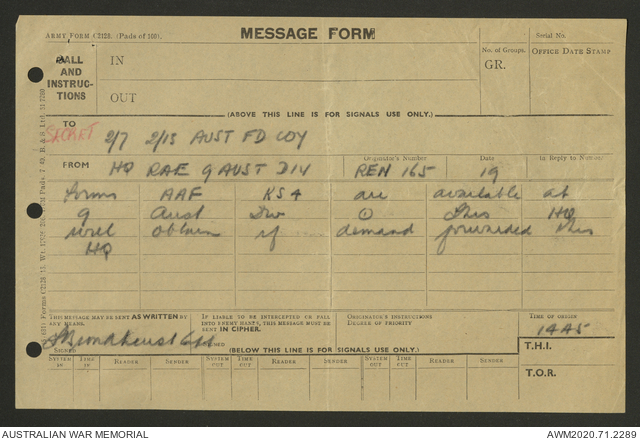 ARMY FORM C2128. (Pads of 100).
MESSAGE FORM
Serial No.
CALL AND INSTRUC- TIONS
IN
OUT
No. of Groups.
GR.
OFFICE DATE STAMP
(ABOVE THIS LINE IS FOR SIGNALS USE ONLY.)
TO
SECRET 2/7 2/13 AUST FD COY
FROM HQ RAE 9 AUST DIV
Originator's Number REN 165
Date 19
In Reply to Number
Forms AAF KS4 are available at
9 Aust Div This HQ
will obtain if demand forwarded this
HQ
THIS MESSAGE MAY BE SENT AS WRITTEN BY ANY MEANS.
IF LIABLE TO BE INTERCEPTED OR FALL INTO ENEMY HANDS, THIS MESSAGE MUST BE SENT IN CIPHER.
ORIGINATOR'S INSTRUCTIONS
DEGREE OF PRIORITY
TIME OF ORIGIN
1445
SIGNED
SIGNED
(BELOW THIS LINE IS FOR SIGNALS USE ONLY.)
T.H.I.
T.O.R.
SYSTEM IN TIME IN READER SENDER SYSTEM OUT TIME OUT READER SENDER SYSTEM OUT TIME OUT READER SENDER
AUSTRALIAN WAR MEMORIAL
AWM2020.71.2289